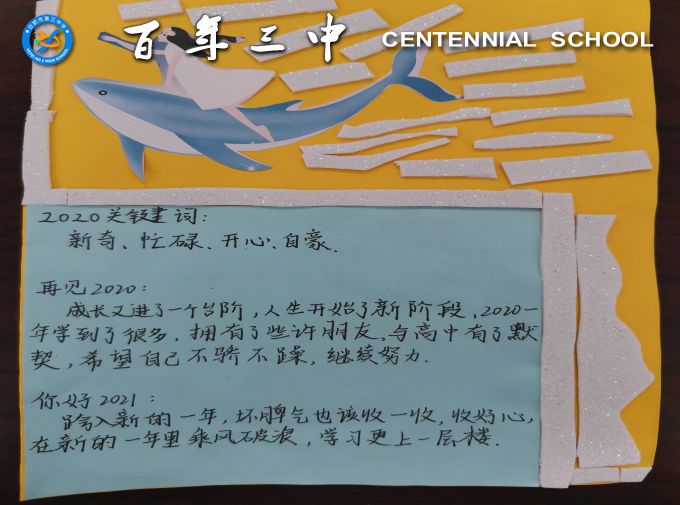 百年三中 CENTENNIAL SCHOOL
2020关键词:
新奇、忙碌、开心、自豪.
再见2020:
成长又进了一个台阶,人生开始了新阶段,2020一
年学到了很多,拥有了些许朋友,与高中有了默
契,希望自己不骄不躁,继续努力.
你好2021:
踏入新的一年,坏脾气也该收一收,收好心,
在新的一年里乘风破浪,学习更上一层楼.